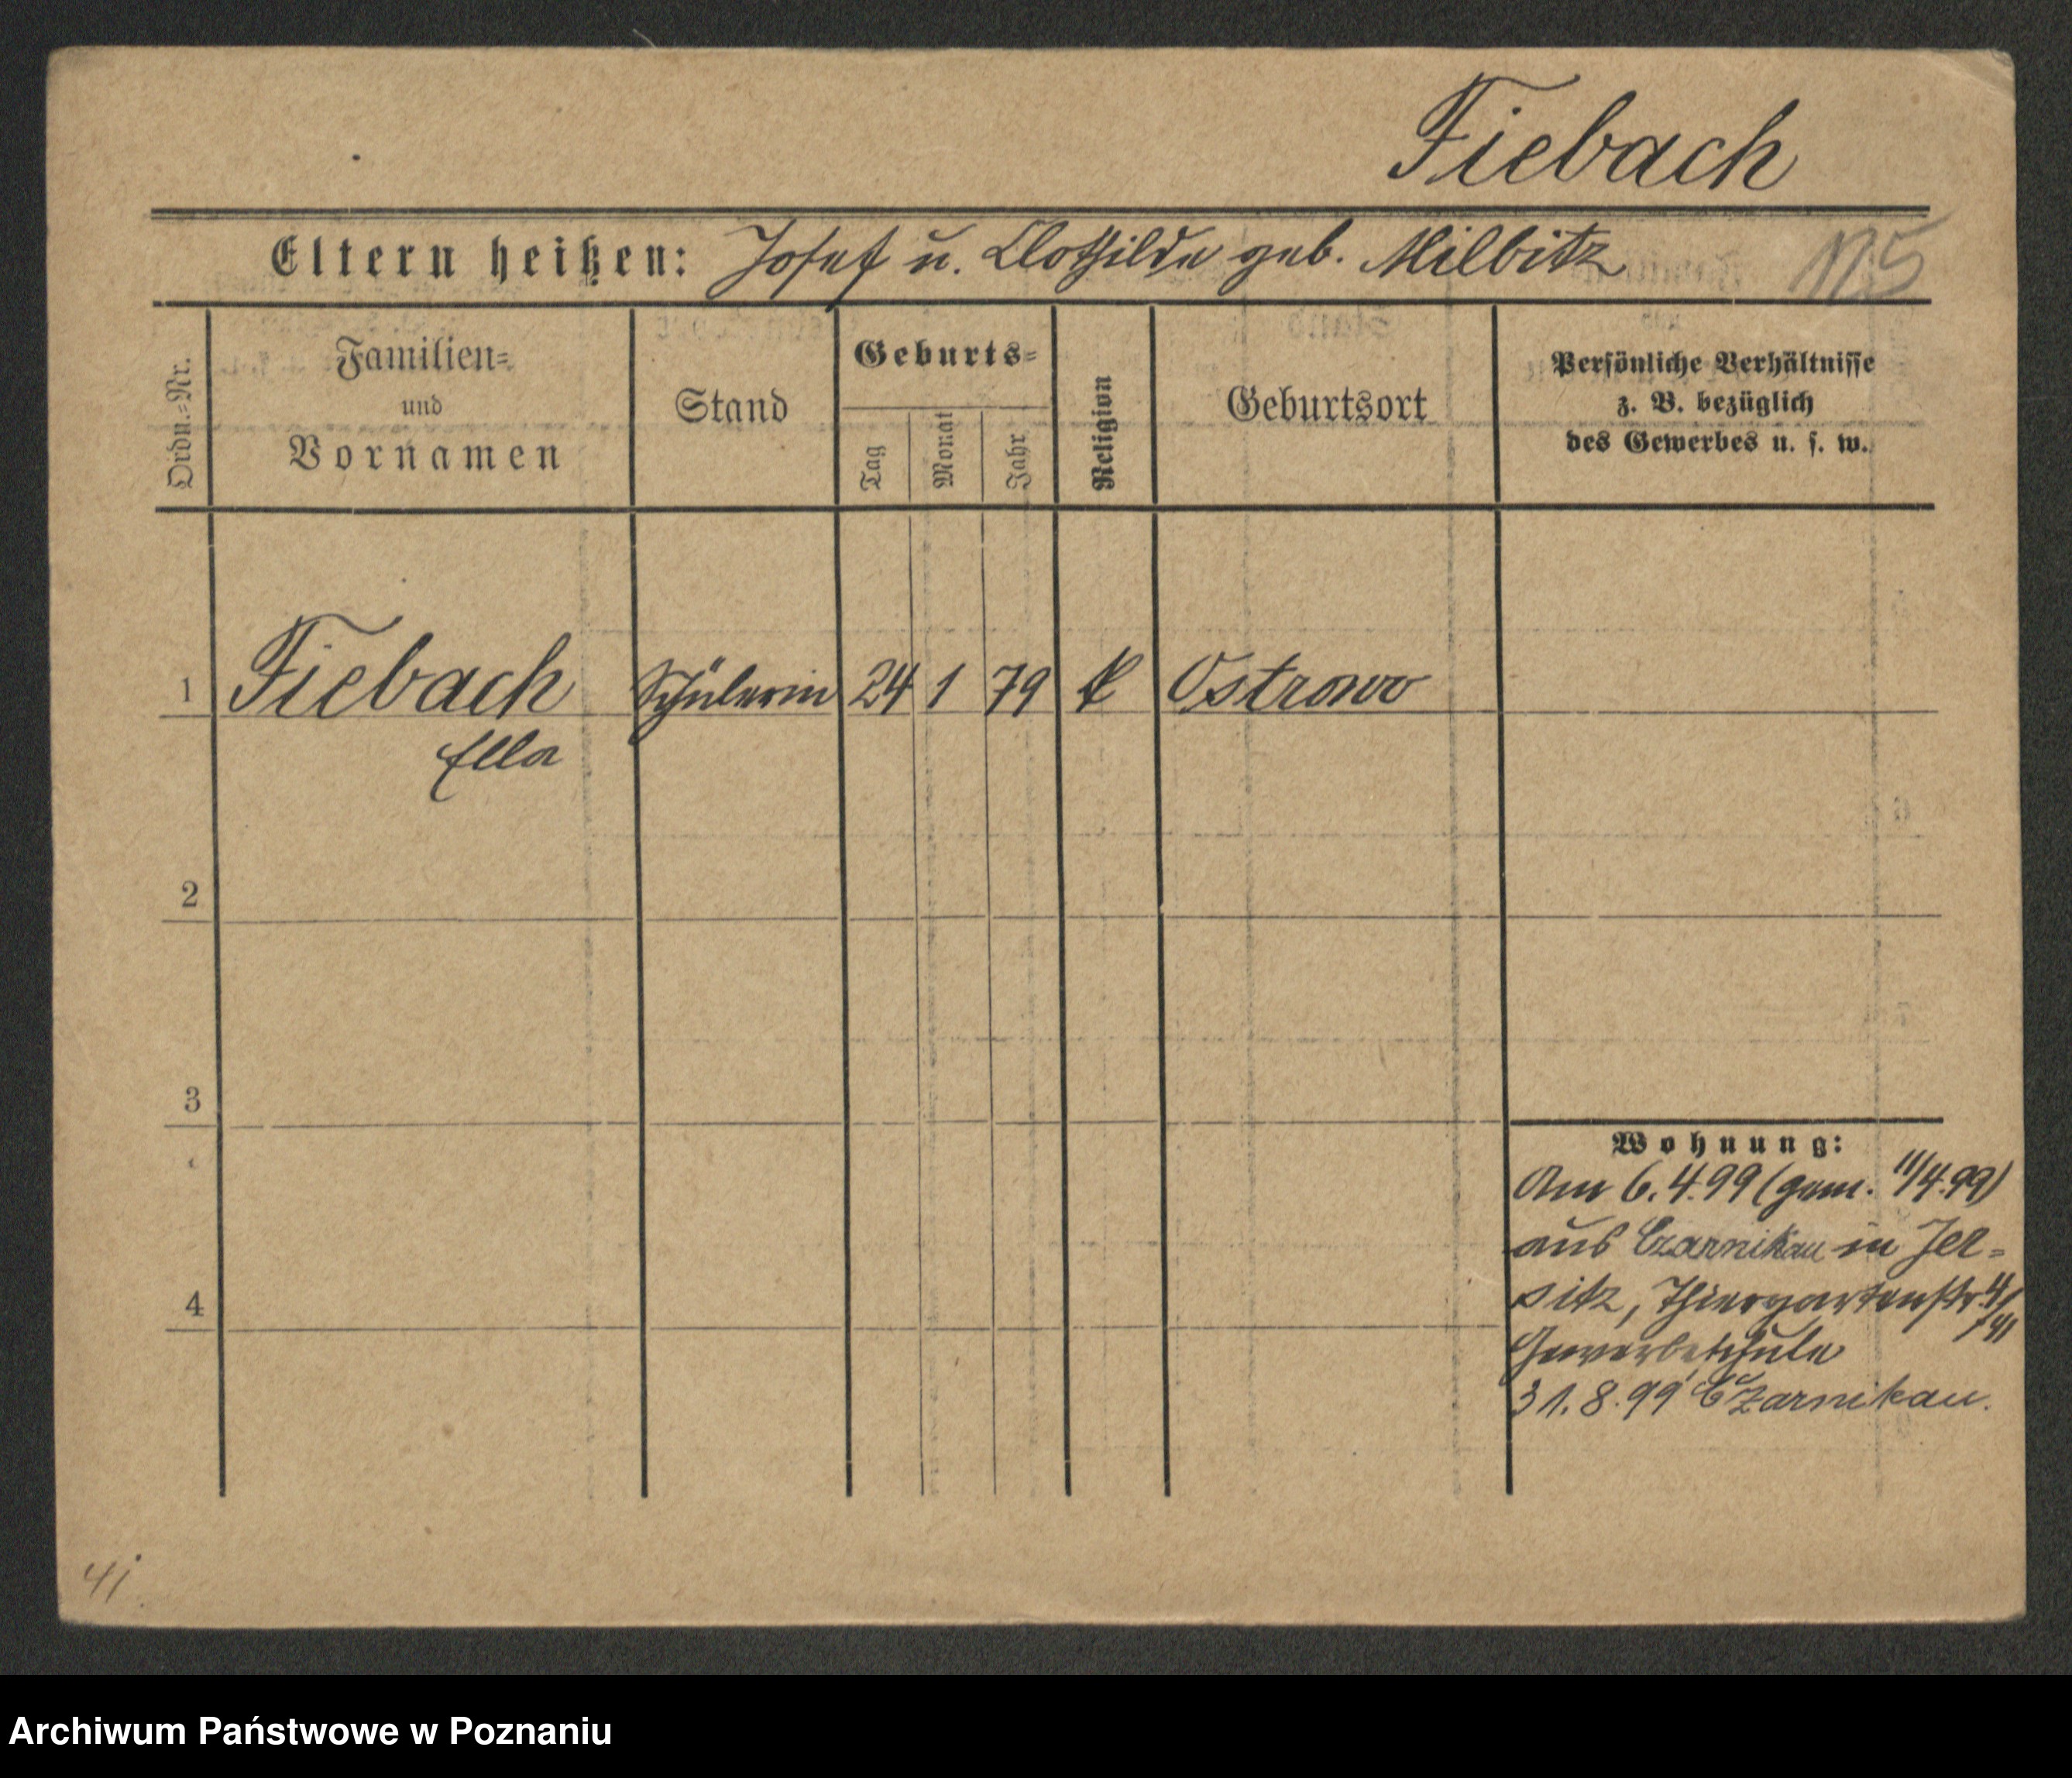 Fiebach
Eltern heißen: Josef u. Clothilde geb. Milbitz
Ordn.=Nr.
Familien=
und
Vornamen
Stand
Geburts=
Tag
Monat
Jahr
Religion
Geburtsort
Persönliche Verhältnisse
z. B. bezüglich
des Gewerbes u. s. w.
1 Fiebach Schülerin 24 1 79 k Ostrowo
Ella
2
3
4
Wohnung:
Am 6.4.99 (gem. 11/4.99)
aus Czarnikau in Jer-
sitz, Thiergartenstr. 4/
Gewerbeschule
31.8.99 Czarnikau.
41
Archiwum Państwowe w Poznaniu